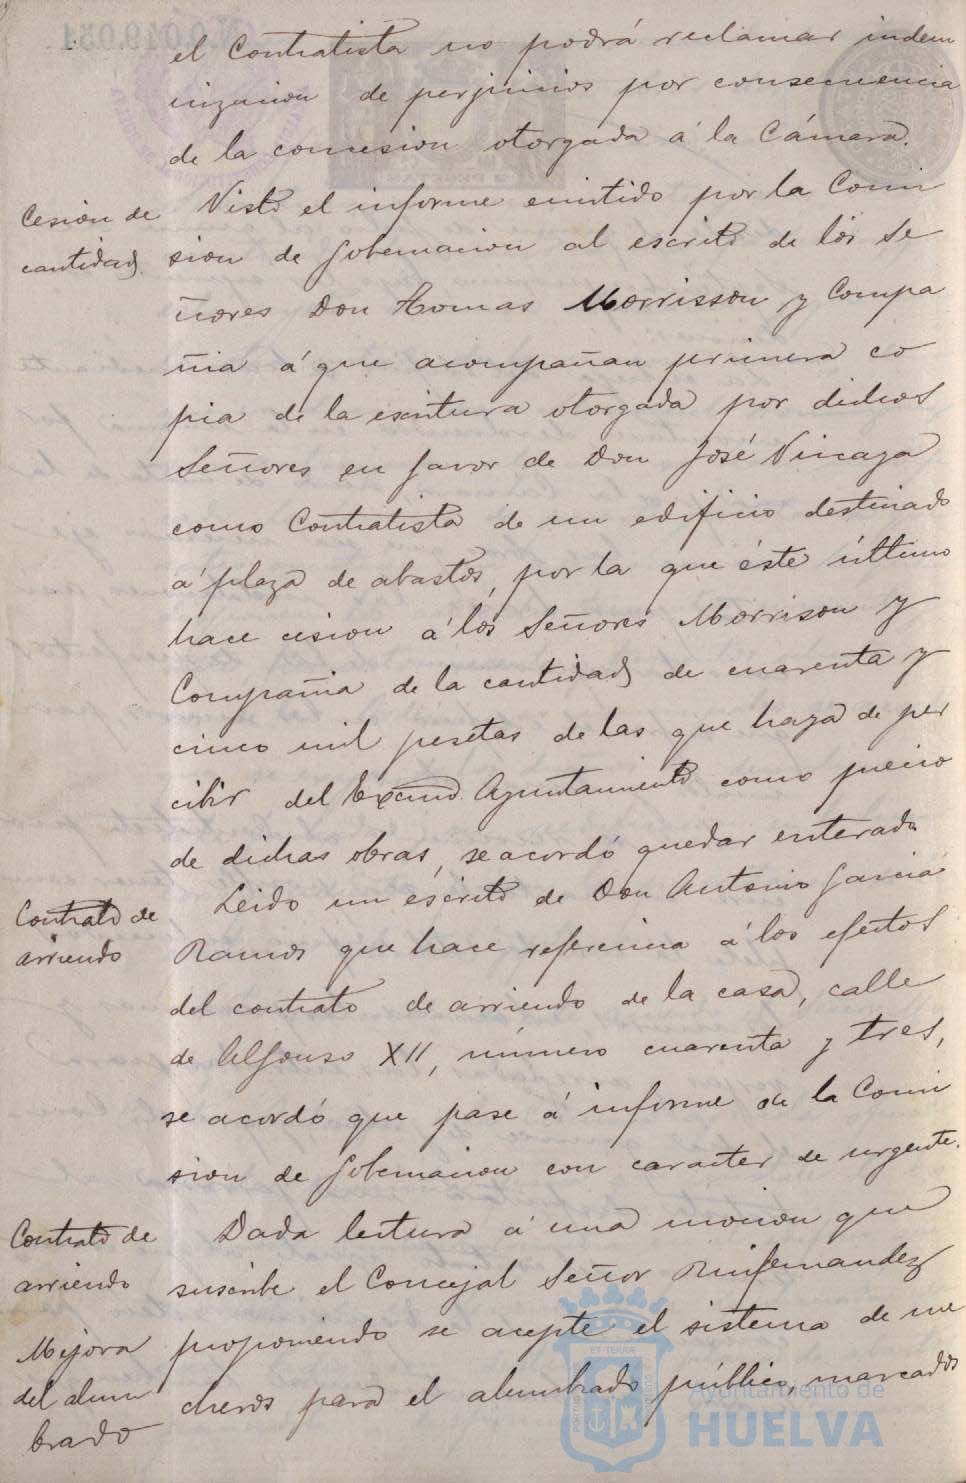 el Contratista no podrá reclamar indem
nizacion de perjuicios por consecuencia
de la concesion otorgada á la Cámara.
Cesion de
cantidad
Visto el informe emitido por la Comi
sion de Gobernacion al escrito de los Se
ñores Don Thomas Morrisson y Compa
ñia á que acompañan primera co
pia de la escritura otorgada por dichos
Señores en favor de Don José Vizcaya
como Contratista de un edificio destinado
á plaza de abastos, por la que éste último
hace cesion á los Señores Morrison y
Compañia de la cantidad de cuarenta y
cinco mil pesetas de las que haya de per
cibir del Excmo Ayuntamiento como precio
de dichas obras, se acordó quedar enterado
Contrato de
arriendo
Leido un escrito de Don Antonio Garcia
Ramos que hace referencia á los efectos
del contrato de arriendo de la casa, calle
de Alfonso XII, número cuarenta y tres,
se acordó que pase á informe de la Comi
sion de Gobernacion con caracter de urgente.
Contrato de
arriendo
Mejora
del alum
brado
Dada lectura á una mocion que
suscribe el Concejal Señor Rinfernandez
proponiendo se acepte el sistema de me
cheros para el alumbrado público, marcados
ET TERRA
Ayuntamiento de
HUELVA